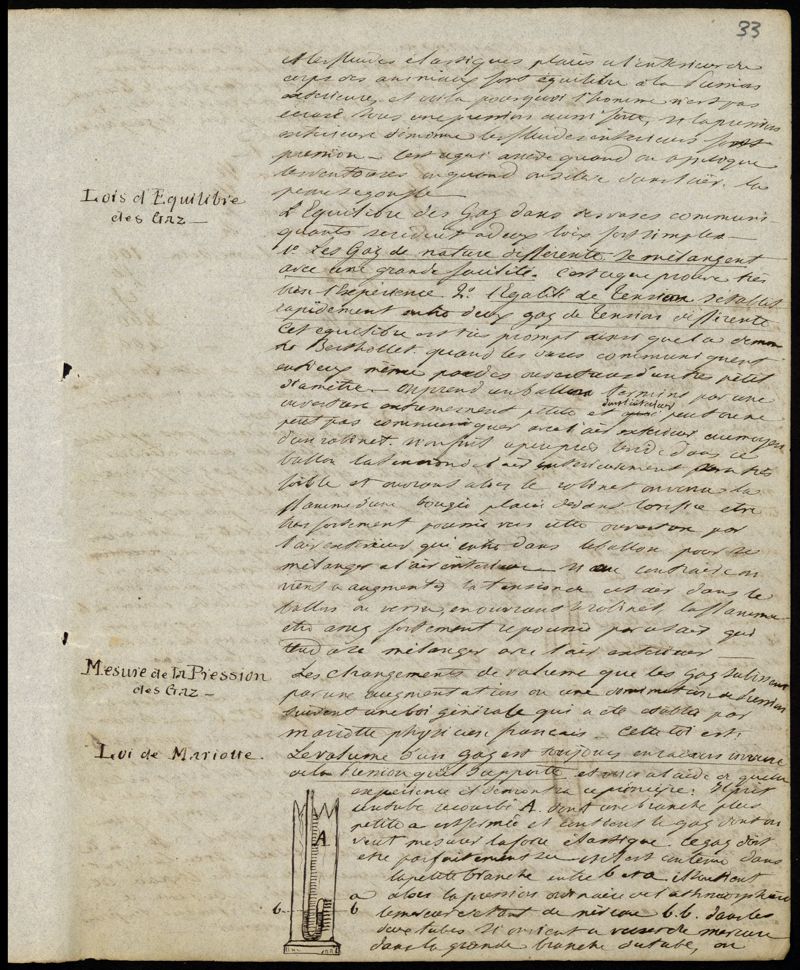 33
et les fluides élastiques placés à l'intérieur du
corps des animaux font équilibre à la pression
extérieure, et voilà pourquoi l'homme n'est pas
écrasé sous une pression aussi forte, si la pression
extérieure diminue les fluides intérieurs font
pression — c'est ce qui arrive quand on applique
les ventouses ou quand on s'élève dans l'air. la
peau se gonfle —
Lois d'Equilibre
des Gaz —
L'Equilibre des Gaz dans des vases communi-
quants se réduit à deux lois fort simples —
1° Les Gaz de nature différente se mélangent
avec une grande facilité. C'est ce que prouve très
bien l'Expérience 2° l'Egalité de tension s'établit
rapidement entre deux gaz de tension différente
Cet equilibre est très prompt ainsi que l'a démon
tré Berthollet quand les vases communiquent
entr'eux même par des ouvertures d'un très petit
diamètre — on prend un ballon terminé par une
ouverture extrêmement petite et dont l'intérieur peut ou ne
peut pas communiquer avec l'air extérieur au moyen
d'un robinet. si on fait à peu près le vide dans ce
ballon la tension de l'air intérieurement sera très
faible et ouvrant alors le robinet on verra la
flamme d'une bougie placée devant l'orifice être
très fortement poussée vers cette ouverture par
l'air extérieur qui entre dans le ballon pour se
mélanger à l'air intérieur si au contraire on
vient à augmenter la tension de cet air dans le
ballon on verra, en ouvrant le robinet, la flamme
être assez fortement repoussée par cet air qui
tend à se mélanger avec l'air extérieur —
Mesure de la Pression
des Gaz —
Les changements de volume que les Gaz subissent
par une augmentation ou une diminution de pression
suivent une loi générale qui a été établie par
mariotte physicien français — Cette loi est:
Loi de Mariotte.
Le volume d'un gaz est toujours en raison inverse
de la Pression qu'il supporte et voici à l'aide de quelle
expérience il démontra ce principe: Il prit
un tube recourbé A. dont une branche plus
petite a est fermée et contient le gaz dont on
veut mesurer la force élastique. Ce gaz doit
être parfaitement sec et il est contenu dans
la petite branche entre b et a. il soutient
alors la pression ordinaire de l'athmosphère
le mercure étant de niveau b.b. dans les
deux tubes si on vient à verser du mercure
dans la grande branche du tube, on
A
a
b
b